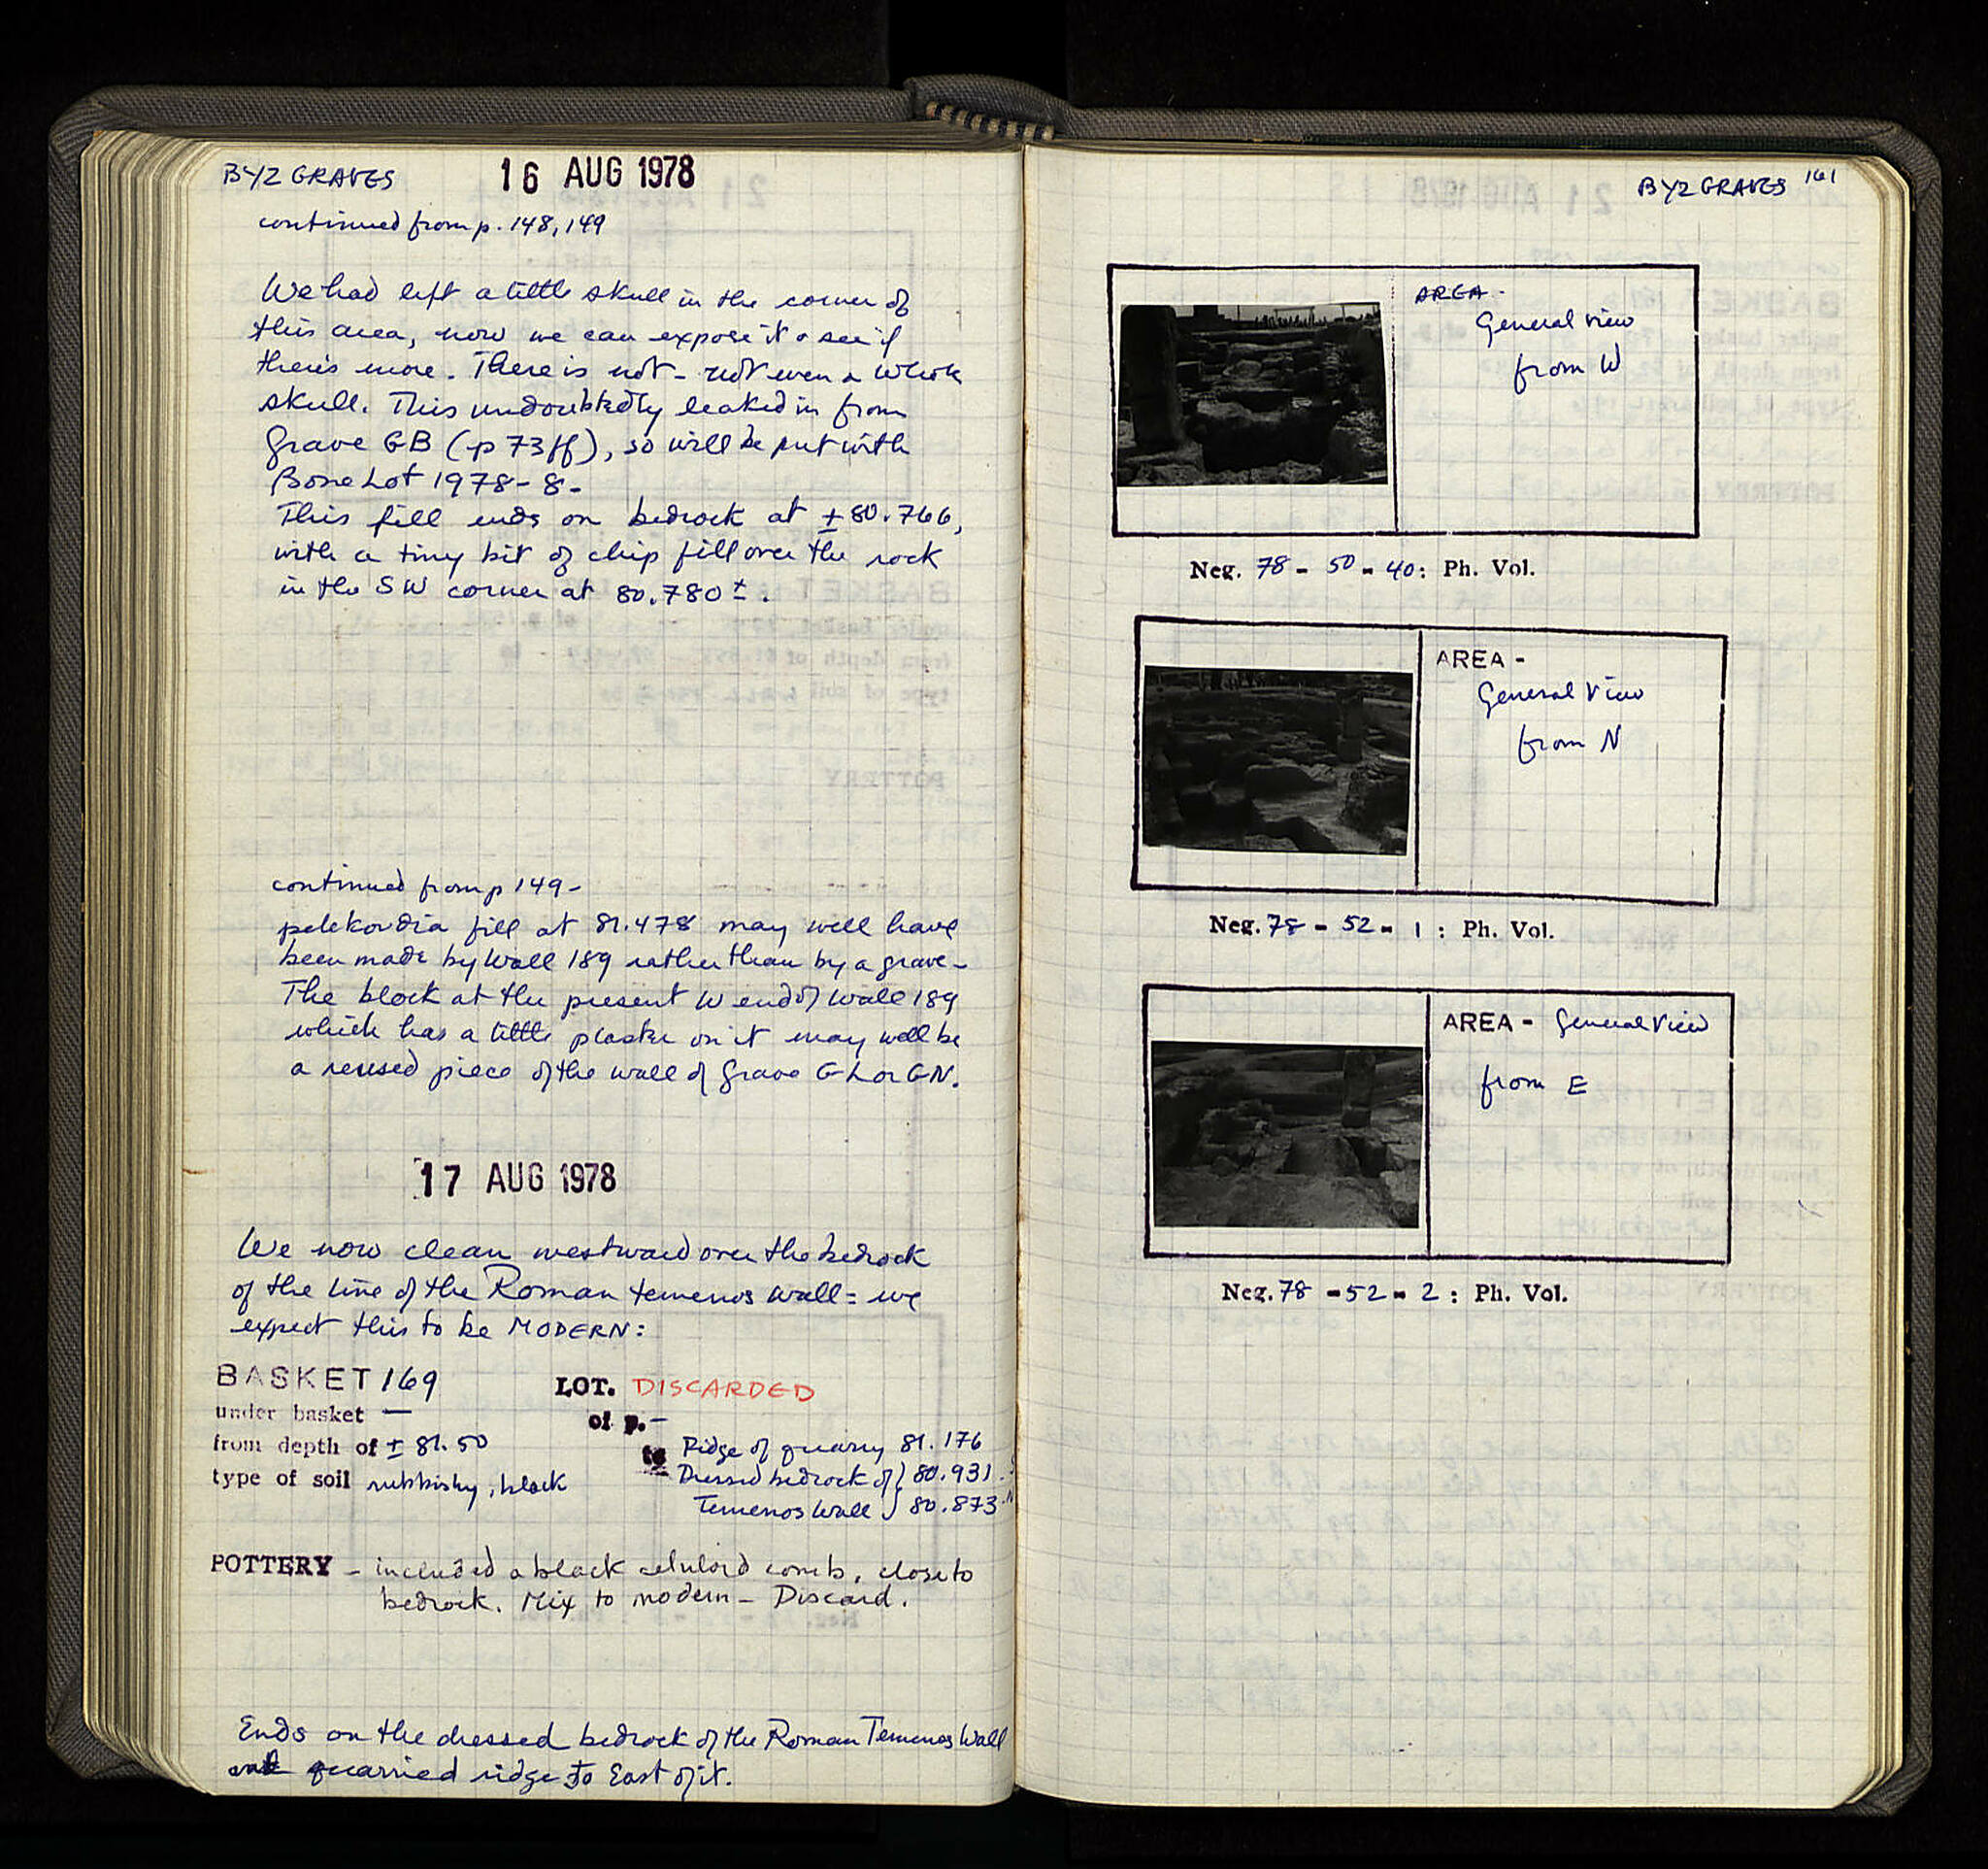 BYZ GRAVES 16 AUG 1978
continued from p. 148, 149
We had left a little skull in the corner of
this area, now we can expose it & see if
there's more. There is not - not even a whole
skull. This undoubtedly leaked in from
Grave GB (p 73ff), so will be put with
Bone Lot 1978-8-
This fill ends on bedrock at ±80.766,
with a tiny bit of chip fill over the rock
in the SW corner at 80.780±.
continued from p 149-
pelekoudia fill at 81.478 may well have
been made by Wall 189 rather than by a grave-
The block at the present W end of Wall 189
which has a little plaster on it may well be
a reused piece of the wall of Grave GL or GN.
17 AUG 1978
We now clean westward over the bedrock
of the line of the Roman temenos wall = we
expect this to be MODERN:
BASKET 169 LOT. DISCARDED
under basket — of p. —
from depth of ± 81.50 to Ridge of quarry 81.176
type of soil rubbishy, black Dressed bedrock of } 80.931
Temenos Wall } 80.873
POTTERY - included a black celuloid comb, close to
bedrock. Mix to modern - Discard.
Ends on the dressed bedrock of the Roman Temenos Wall
and quarried ridge to East of it.
BYZ GRAVES 161
AREA -
General view
from W
Neg. 78 - 50 - 40: Ph. Vol.
AREA -
General View
from N
Neg. 78 - 52 - 1 : Ph. Vol.
AREA - General View
from E
Neg. 78 - 52 - 2 : Ph. Vol.